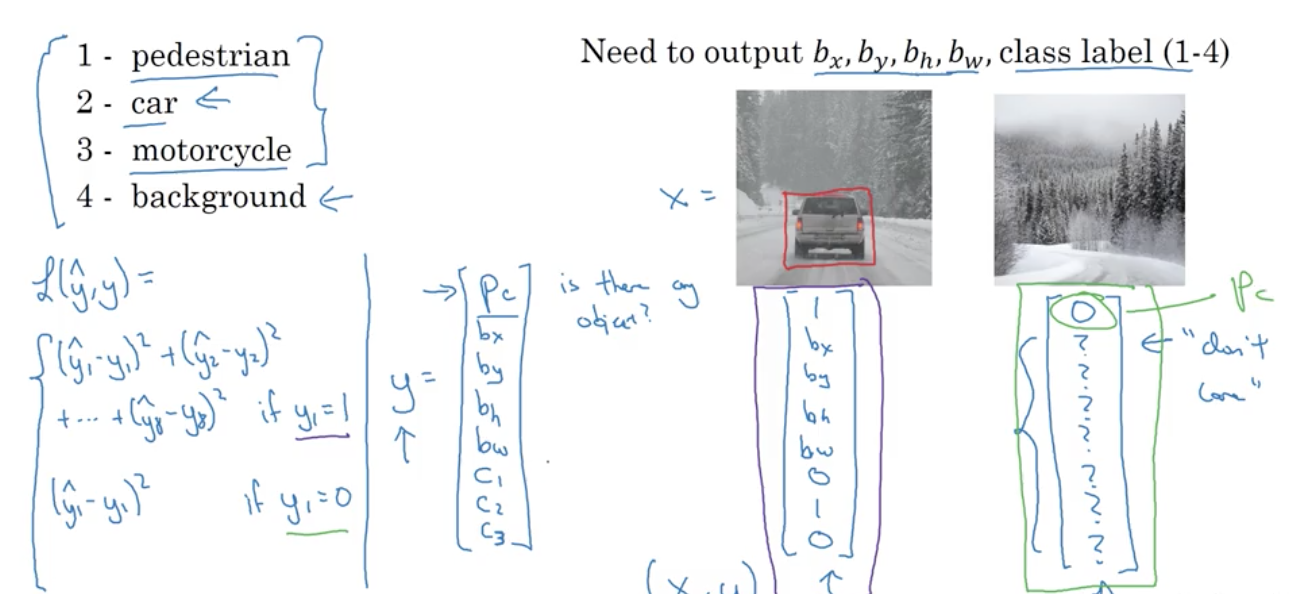 1 - pedestrian
2 - car ←
3 - motorcycle
4 - background ←
Need to output bₓ, b_y, b_h, b_w, class label (1-4)
x =
ℒ(ŷ,y) =
(ŷ₁-y₁)² + (ŷ₂-y₂)²
+ ... + (ŷ₈-y₈)² if y₁=1
(ŷ₁-y₁)² if y₁=0
y =
→ Pc
bx
by
bh
bw
C₁
C₂
C₃
is there any
object?
1
bx
by
bh
bw
0
1
0
(x, y)
0
?
?
?
?
?
?
?
Pc
← "don't
care"